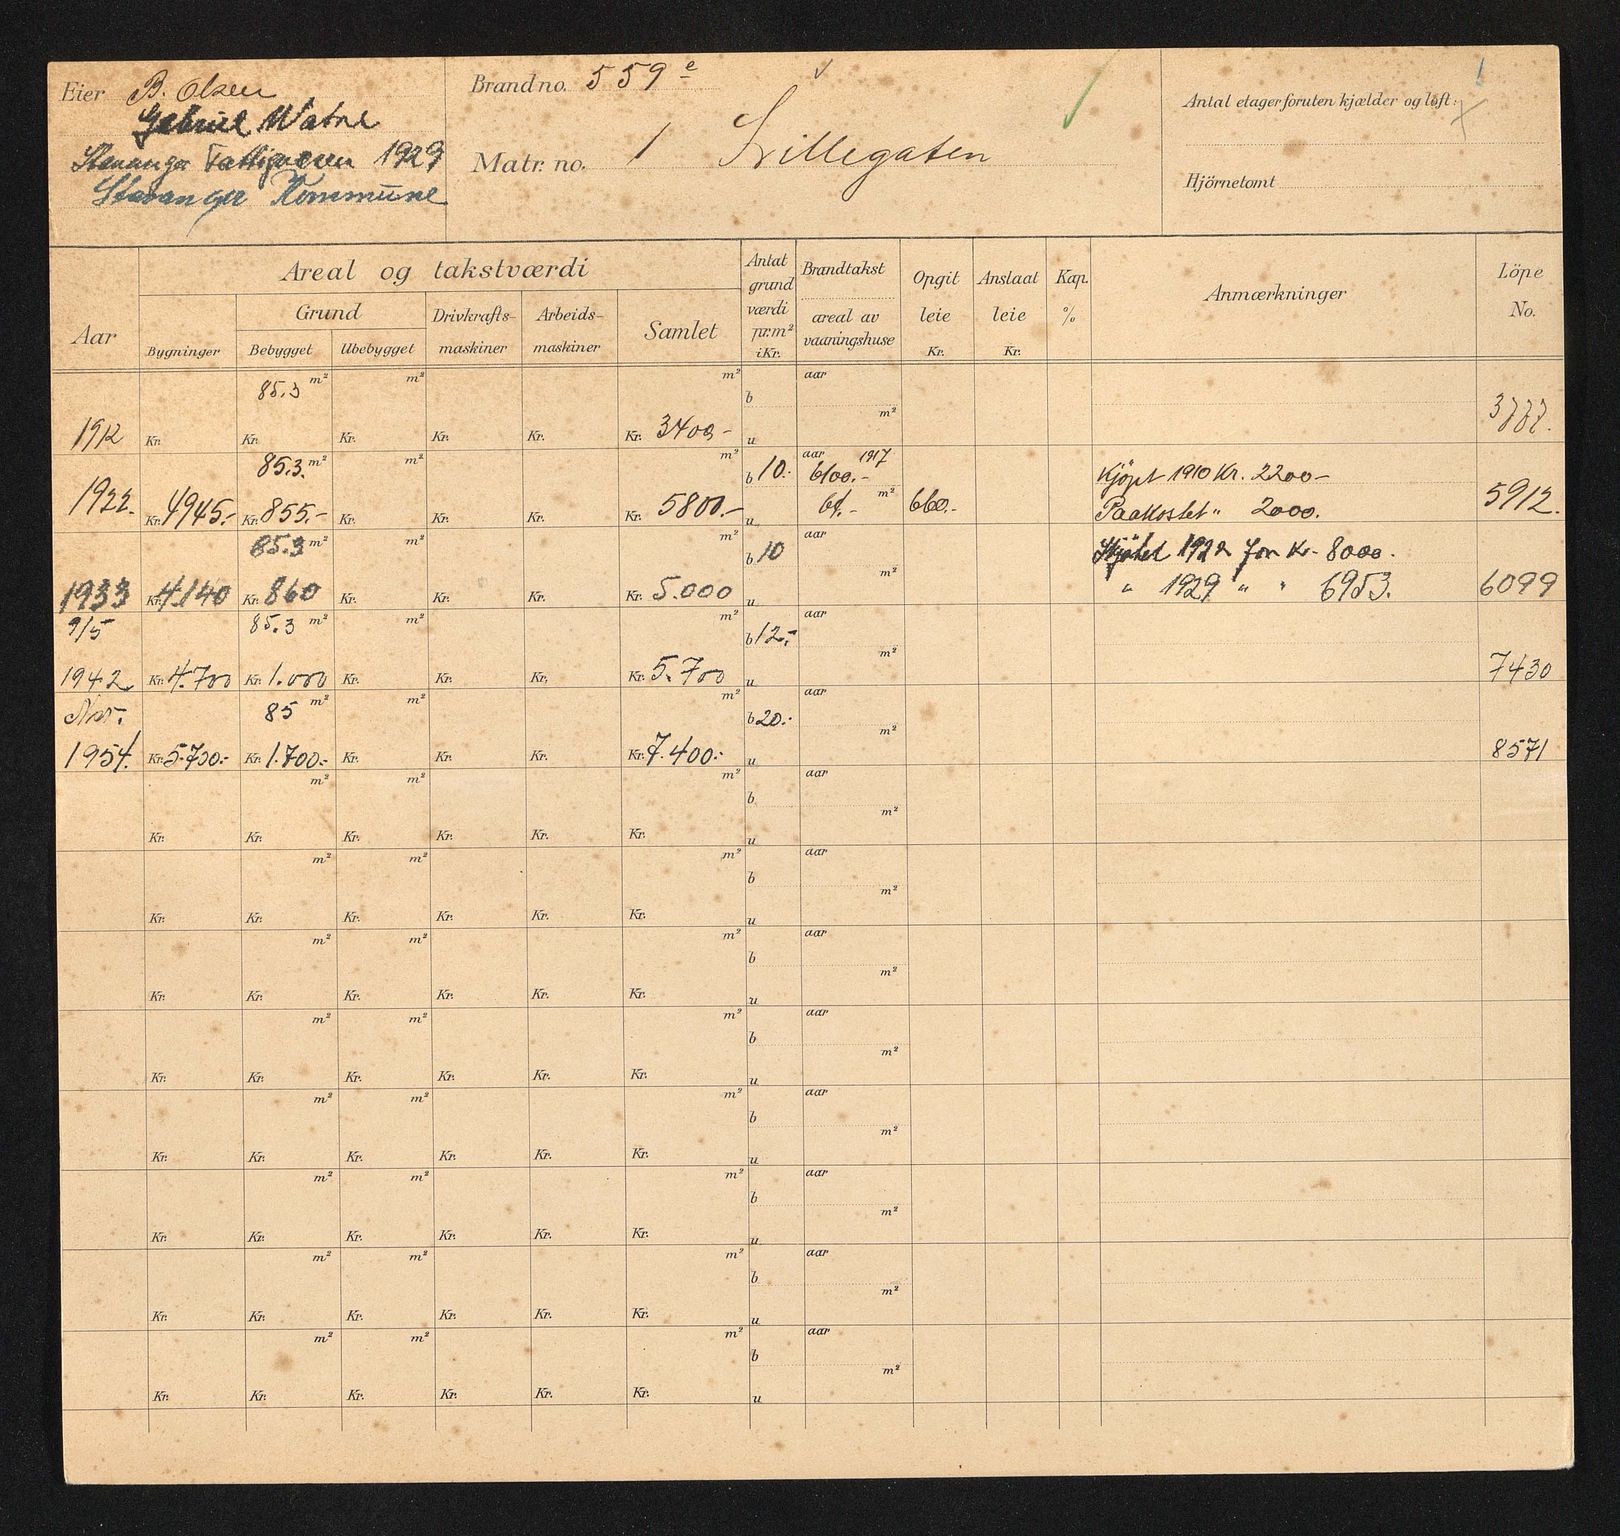 Eier B. Olsen
Gabriel Watne
Stavanger Fattigvesen 1929
Stavanger Kommune
Brand no. 559 e
Matr. no. 1 Lillegaten
Antal etager foruten kjælder og loft:
Hjörnetomt
Aar
Areal og takstværdi
Bygninger
Grund
Bebygget Ubebygget
Drivkrafts-
maskiner
Arbeids-
maskiner
Samlet
Antat
grund
værdi
pr.m²
i Kr.
Brandtakst
areal av
vaaningshuse
Opgit
leie
Kr.
Anslaat
leie
Kr.
Kap.
%
Anmærkninger
Löpe
No.
85.3 m² m² m² b aar
1912 Kr. Kr. Kr. Kr. Kr. Kr. 3400,- u m²
85.3. m² m² m² b 10.- aar 1917 6100.- Kjöpt 1910 Kr. 2200-
1922. Kr. 4945.- Kr. 855.- Kr. Kr. Kr. Kr. 5800.- u m² 660.- Paakostet " 2000. 5912.
85.3 m² m² m² b 10 aar Skjötet 1922 for Kr. 8000.
1933 Kr. 4.140 Kr. 860 Kr. Kr. Kr. Kr. 5.000 u m² " 1929 " " 6953. 6099
9/5 85.3 m² m² m² b 12.- aar
1942 Kr. 4.700 Kr. 1.000 Kr. Kr. Kr. Kr. 5.700 u m² 7430
85 m² m² m² b 20.- aar
1954. Kr. 5.700.- Kr. 1.700.- Kr. Kr. Kr. Kr. 7.400.- u m² 8571
m² m² m² b aar
Kr. Kr. Kr. Kr. Kr. Kr. u m²
m² m² m² b aar
Kr. Kr. Kr. Kr. Kr. Kr. u m²
m² m² m² b aar
Kr. Kr. Kr. Kr. Kr. Kr. u m²
m² m² m² b aar
Kr. Kr. Kr. Kr. Kr. Kr. u m²
m² m² m² b aar
Kr. Kr. Kr. Kr. Kr. Kr. u m²
m² m² m² b aar
Kr. Kr. Kr. Kr. Kr. Kr. u m²
m² m² m² b aar
Kr. Kr. Kr. Kr. Kr. Kr. u m²
m² m² m² b aar
Kr. Kr. Kr. Kr. Kr. Kr. u m²